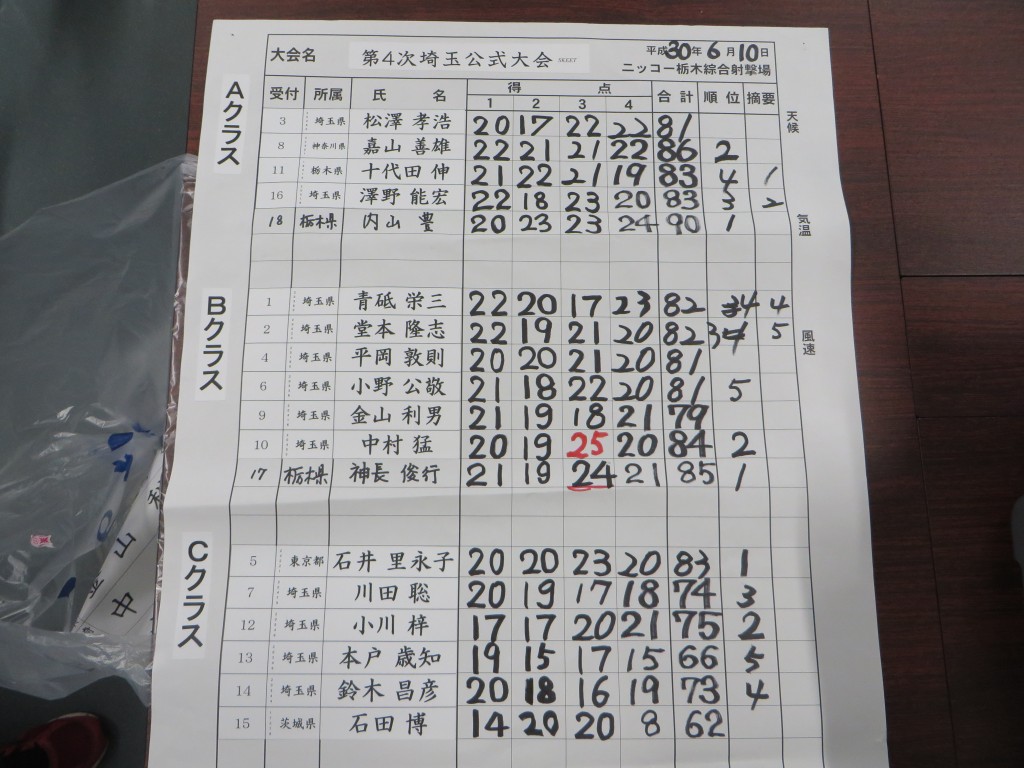 大会名 第4次埼玉公式大会 SKEET 平成30年6月10日
ニッコー栃木綜合射撃場
受付 所属 氏 名 得 点 合計 順位 摘要
1 2 3 4
Aクラス
3 埼玉県 松澤 孝浩 20 17 22 22 81
8 神奈川県 嘉山 善雄 22 21 21 22 86 2
11 栃木県 十代田 伸 21 22 21 19 83 4 1
16 埼玉県 澤野 能宏 22 18 23 20 83 3 2
18 栃木県 内山 豊 20 23 23 24 90 1
Bクラス
1 埼玉県 青砥 栄三 22 20 17 23 82 4 4
2 埼玉県 堂本 隆志 22 19 21 20 82 3 5
4 埼玉県 平岡 敦則 20 20 21 20 81
6 埼玉県 小野 公敬 21 18 22 20 81 5
9 埼玉県 金山 利男 21 19 18 21 79
10 埼玉県 中村 猛 20 19 25 20 84 2
17 栃木県 神長 俊行 21 19 24 21 85 1
Cクラス
5 東京都 石井 里永子 20 20 23 20 83 1
7 埼玉県 川田 聡 20 19 17 18 74 3
12 埼玉県 小川 梓 17 17 20 21 75 2
13 埼玉県 本戸 歳知 19 15 17 15 66 5
14 埼玉県 鈴木 昌彦 20 18 16 19 73 4
15 茨城県 石田 博 14 20 20 8 62
天候
気温
風速
中山